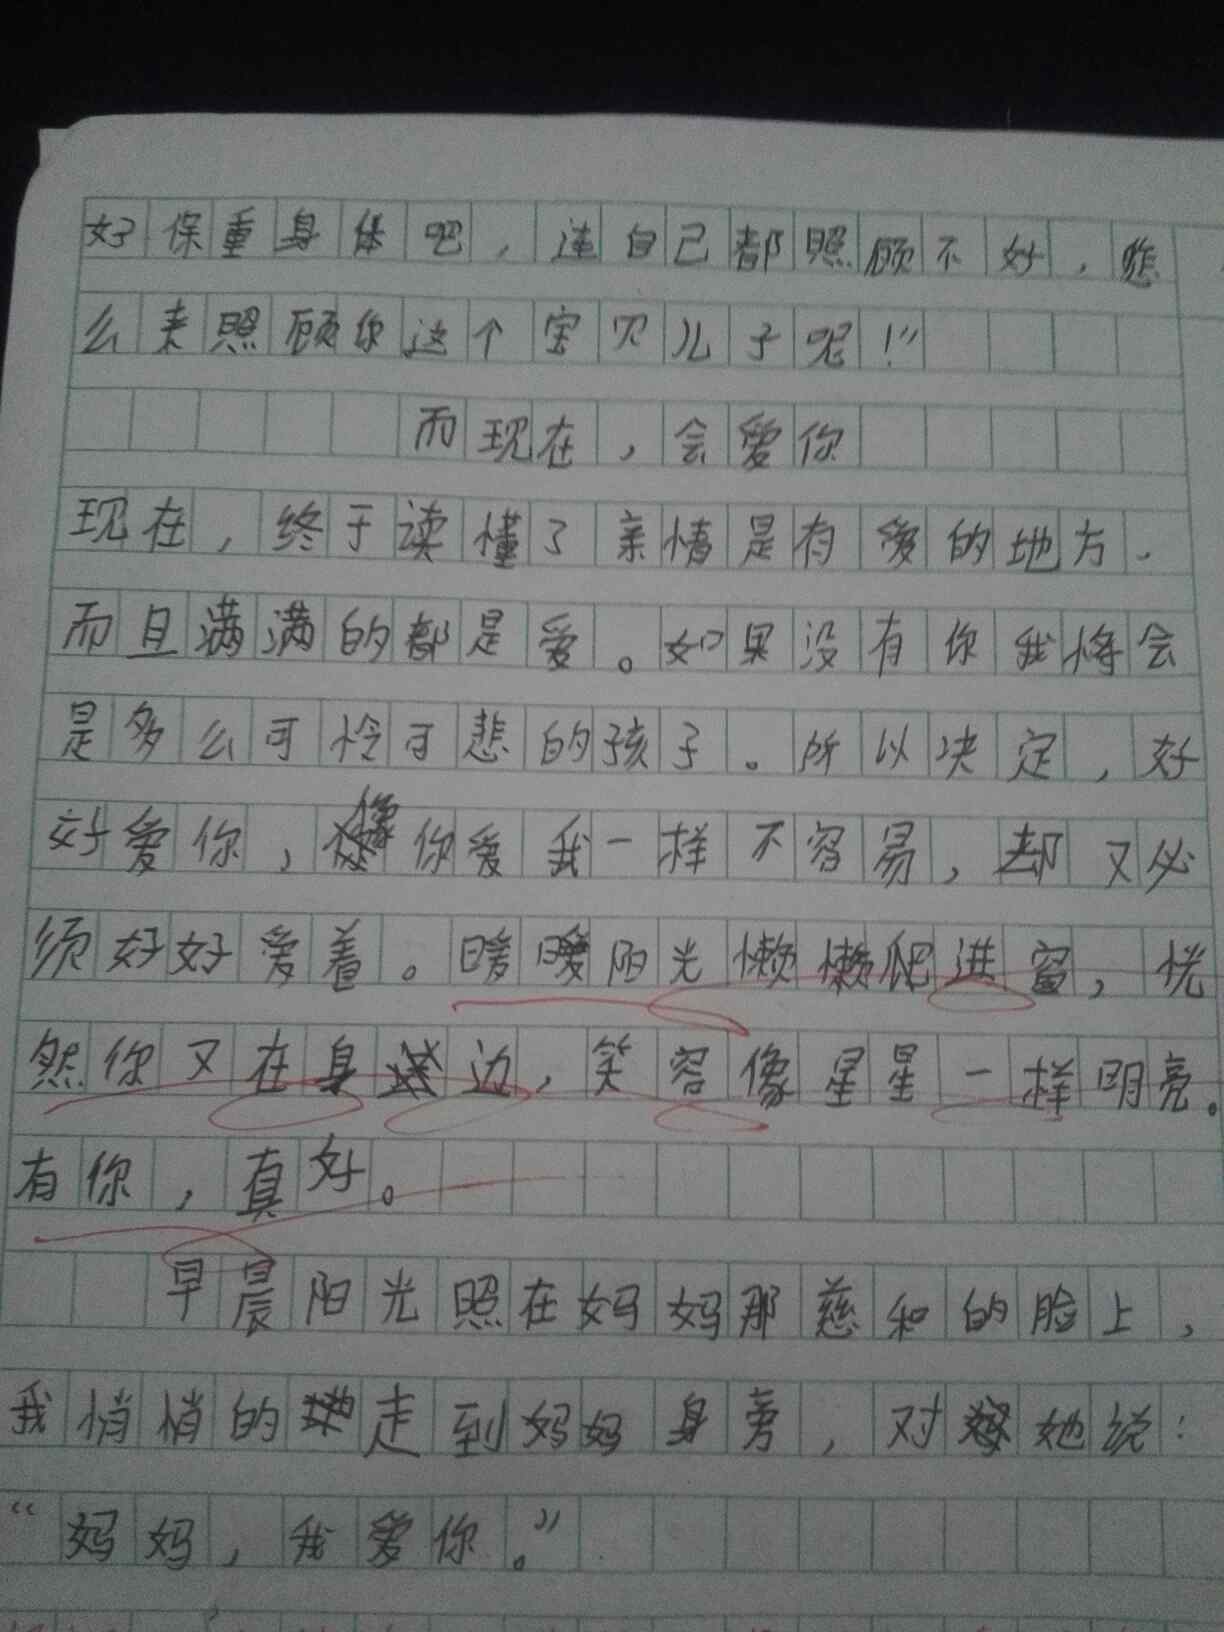 好保重身体吧，连自己都照顾不好，怎
么来照顾你这个宝贝儿子呢！”
而现在，会爱你
现在，终于读懂了亲情是有爱的地方，
而且满满的都是爱。如果没有你我将会
是多么可怜可悲的孩子。所以决定，好
好爱你，像你爱我一样不容易，却又必
须好好爱着。暖暖阳光懒懒爬进窗，恍
然你又在身边，笑容像星星一样明亮。
有你，真好。
早晨阳光照在妈妈那慈和的脸上，
我悄悄的走到妈妈身旁，对她说：
“妈妈，我爱你。”